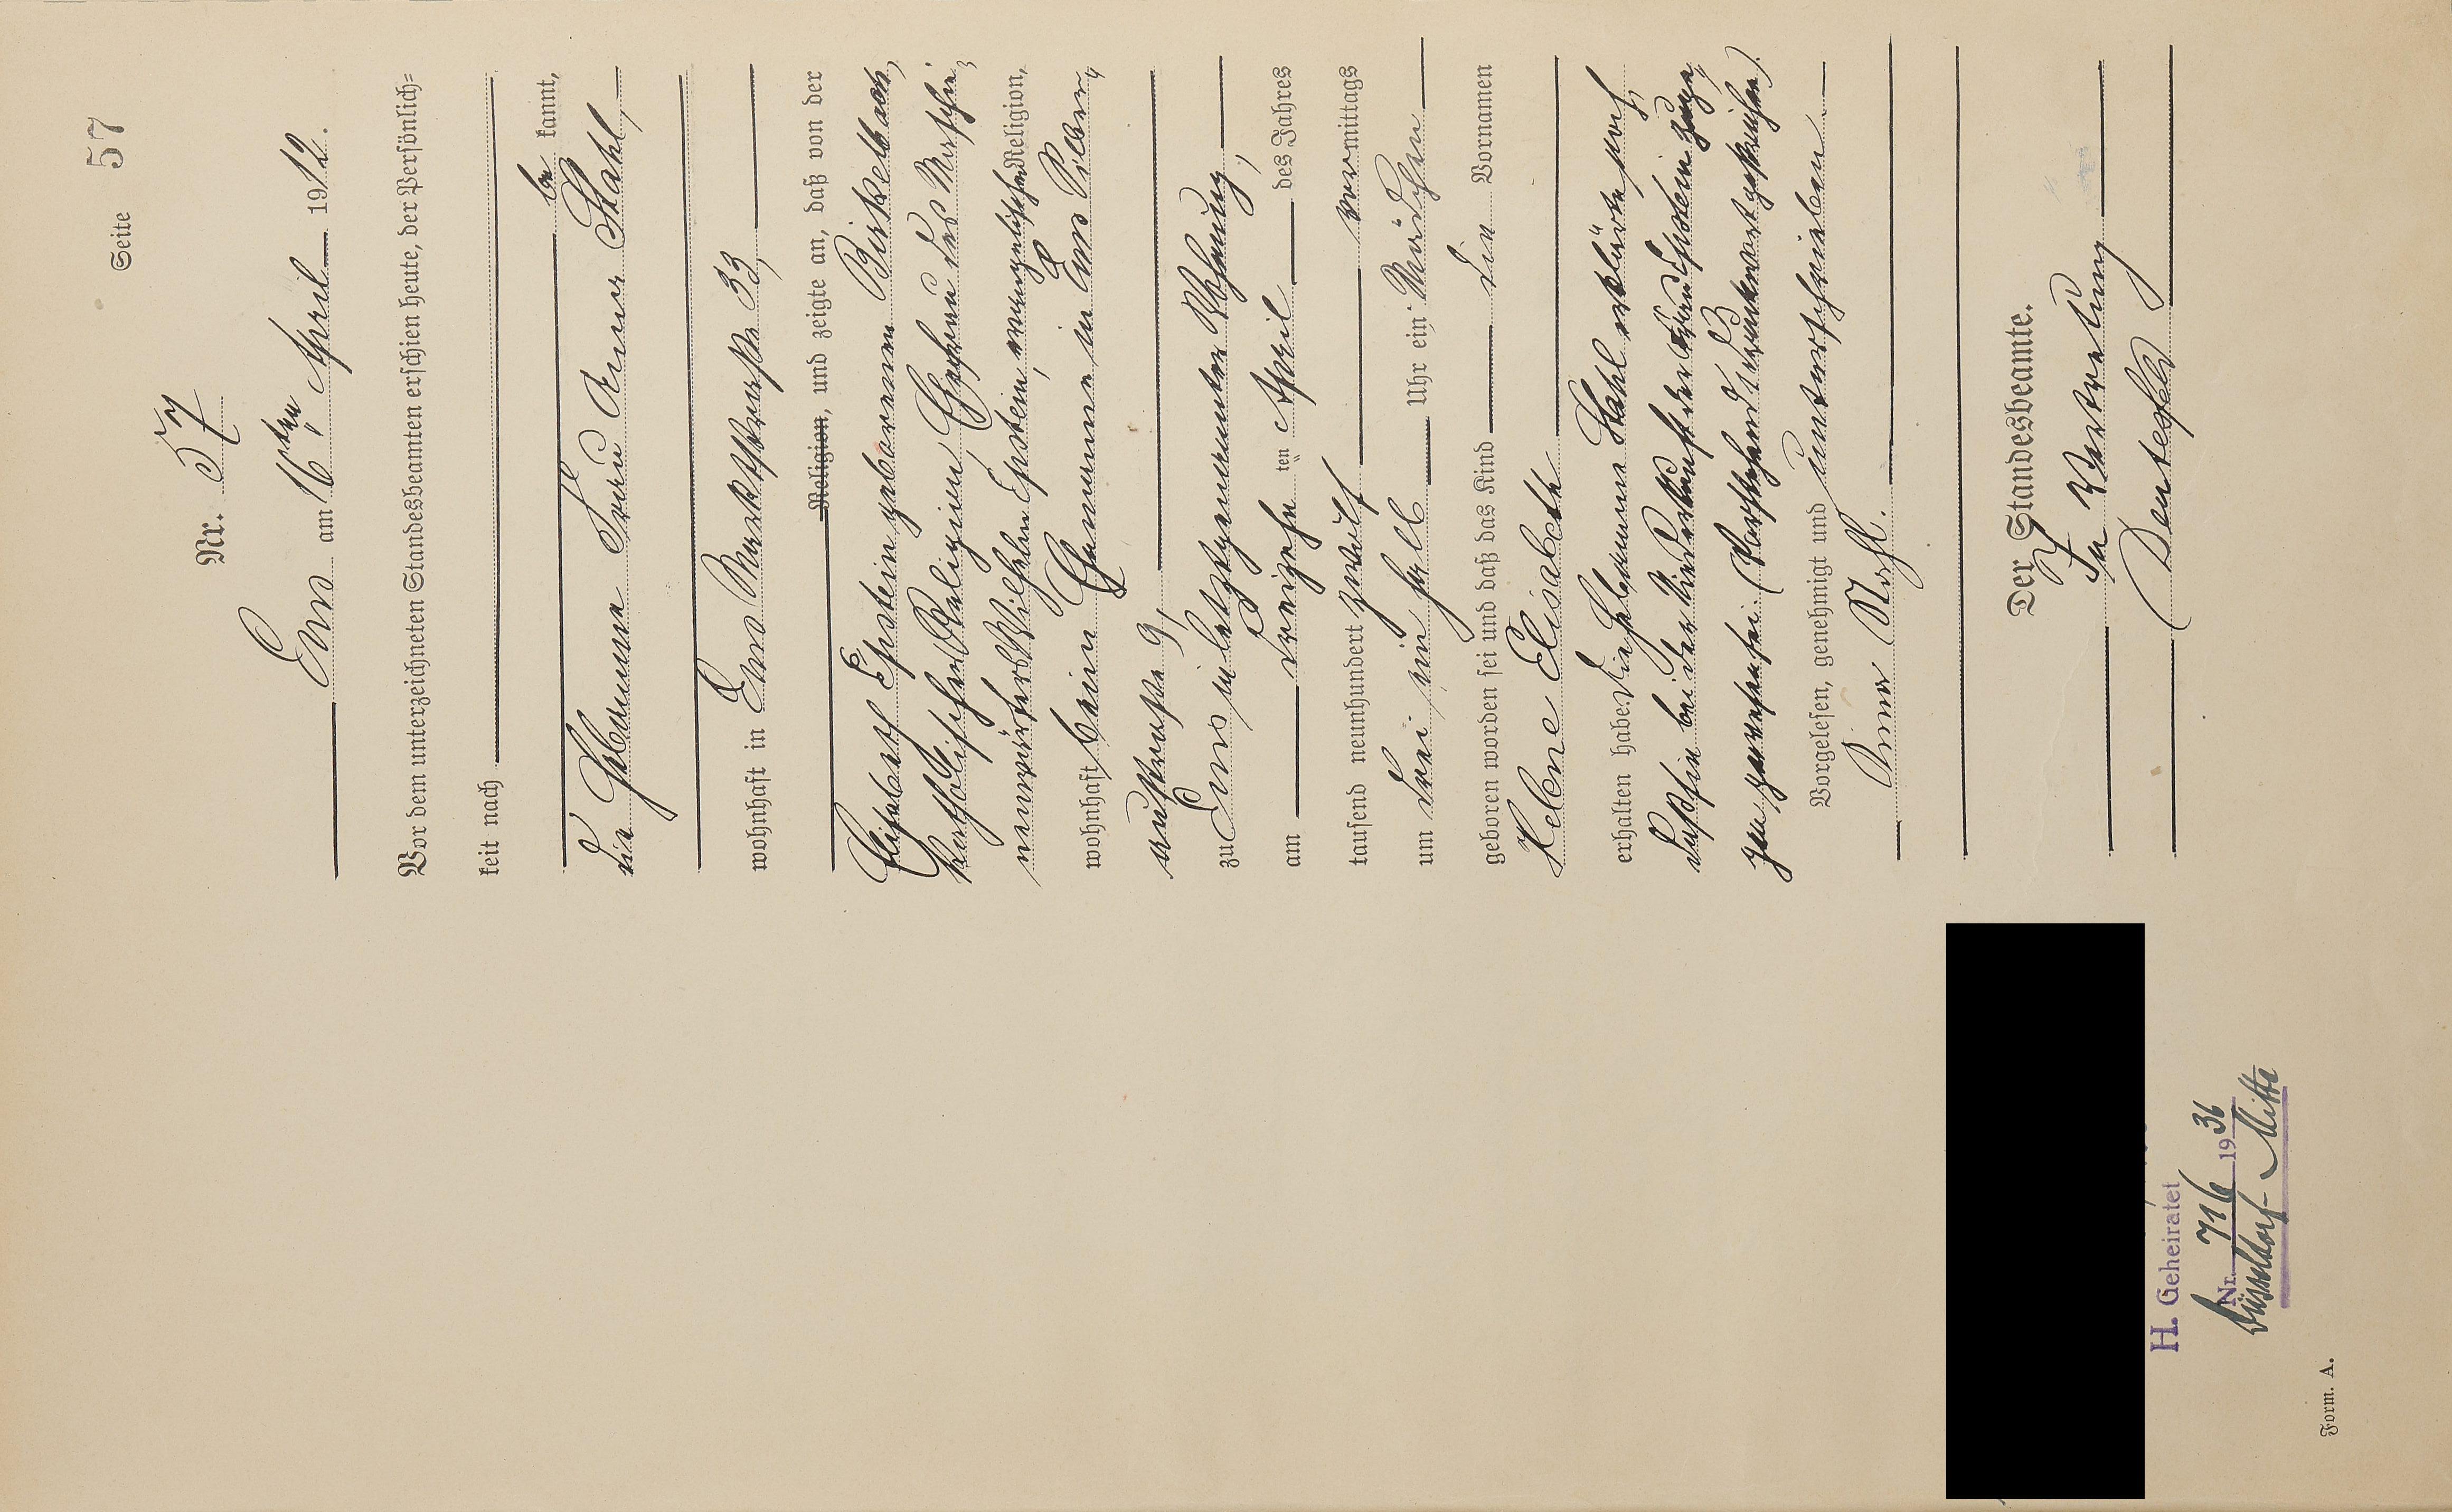 Seite 57
Nr. 57
Ems am 16ten April 1912.
Vor dem unterzeichneten Standesbeamten erschien heute, der Persönlich=
keit nach
be kannt,
die Hebamme Frau Anna Stahl,
wohnhaft in Ems Marktstraße 33,
Religion, und zeigte an, daß von der
Elisabeth Epstein geborenen Birkelbach,
katholischer Religion, Ehefrau des
Wilhelm Epstein, evangelischer Religion,
wohnhaft beim Ehemanne in Ems Silber¬
austraße 9,
zu Ems in letztgenannter Wohnung,
am dreizehn ten April des Jahres
tausend neunhundert zwölf vormittags
um drei ein halb Uhr ein Mädchen
geboren worden sei und daß das Kind die Vornamen
Helene Elisabeth
erhalten habe. Die Hebamme Stahl erklärte noch,
daß sie bei der Niederkunft der Ehefrau Epstein zuge¬
gen gewesen sei. (Vorstehend Druckworte gestrichen).
Vorgelesen, genehmigt und unterschrieben
Anna Stahl.
Der Standesbeamte.
In Vertretung
H. Geheiratet
Nr. 716 1936
Düsseldorf-Mitte
Form. A.